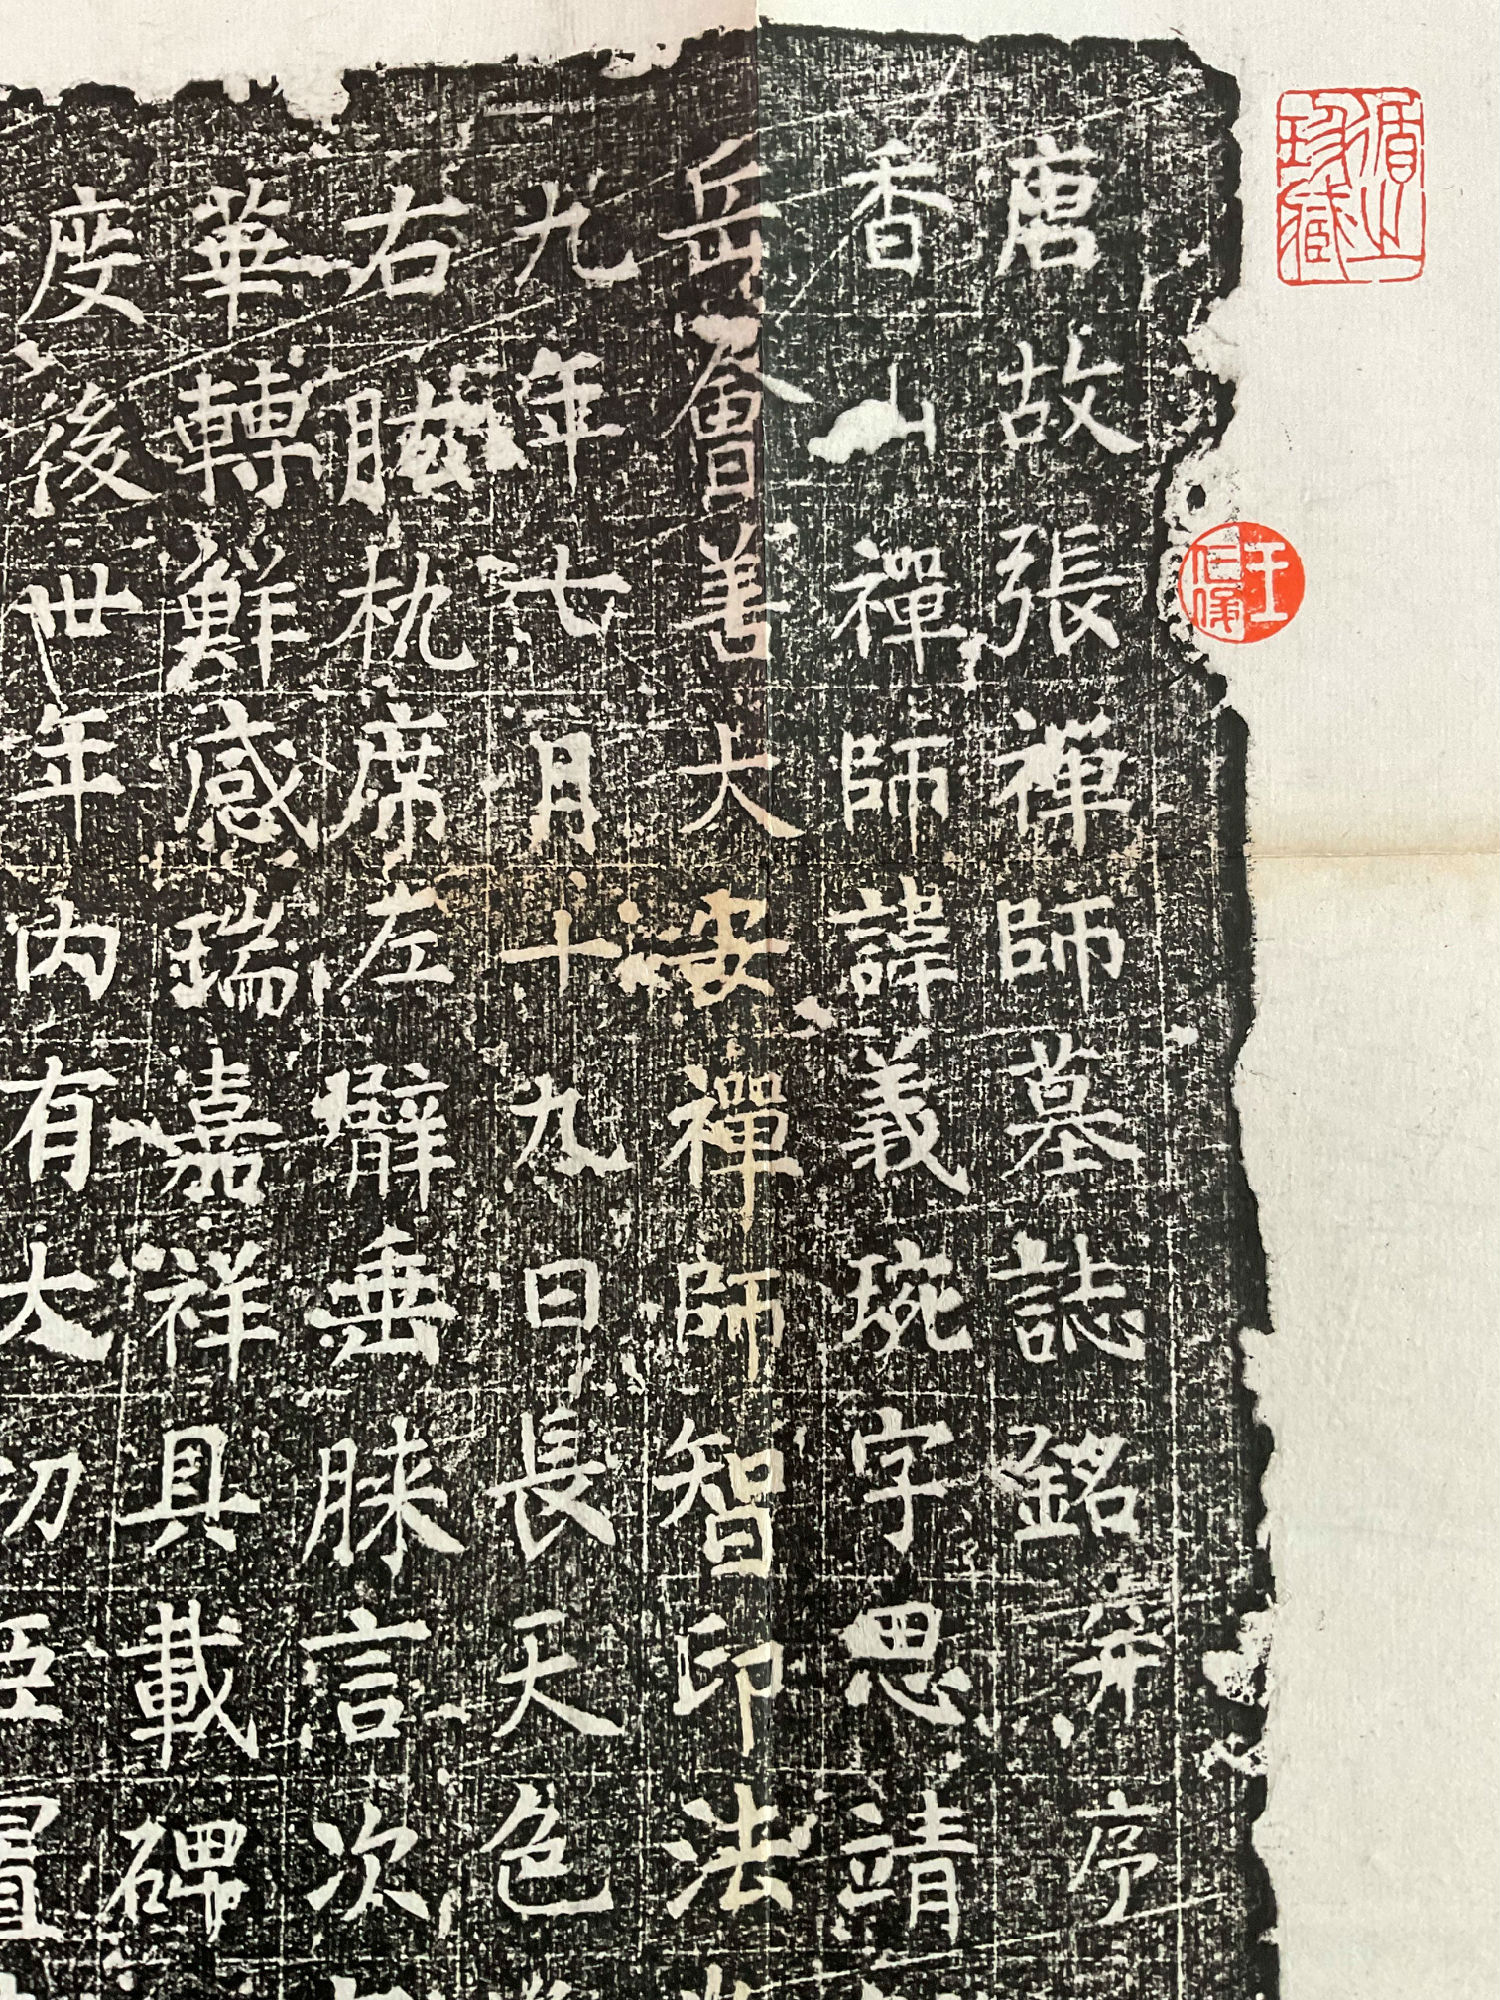 循之珍藏
王
唐故張禪師墓誌銘并序
香山禪師諱義琬字思靖
岳會善大安禪師智印法
九年七月十九日長天色
右脇枕席左臂垂膝言次
華轉鮮感瑞嘉祥具載碑
度後丗年內有大功臣置